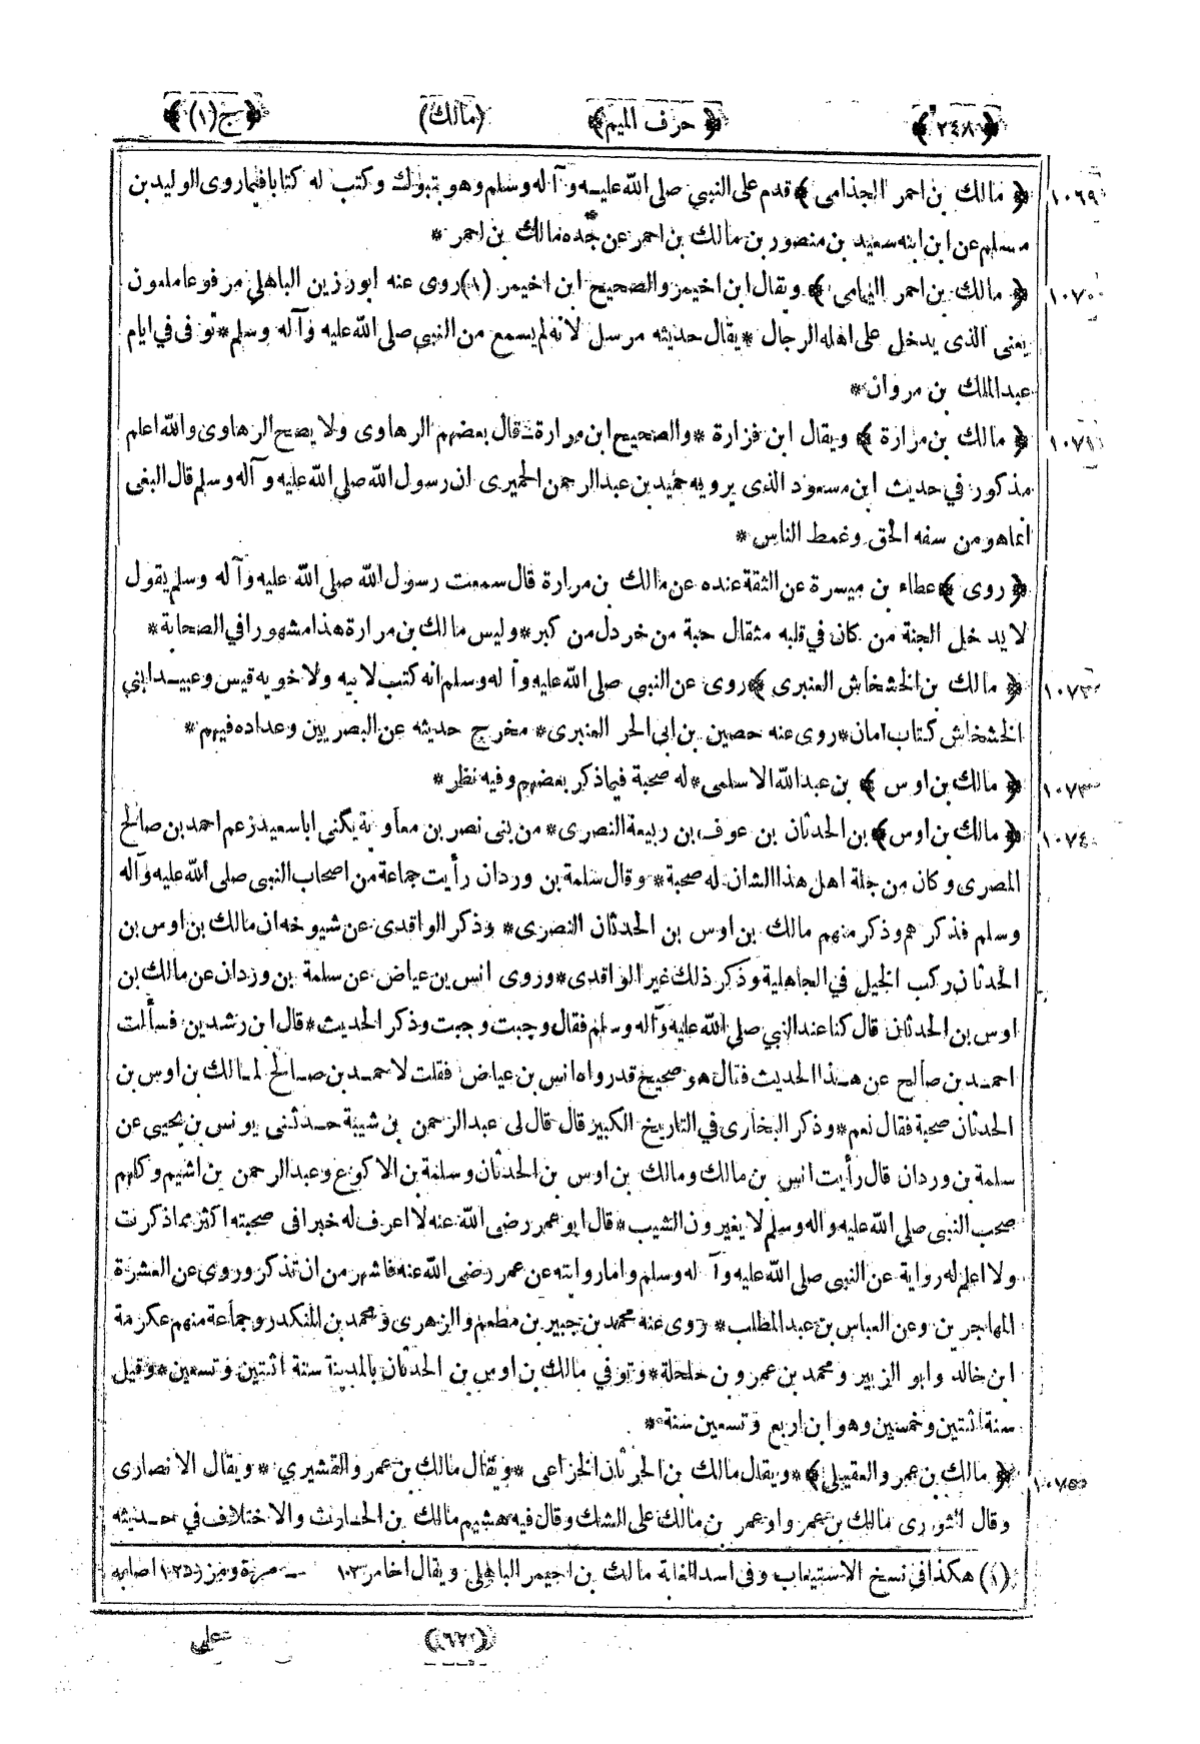 ﴿٢٤٨﴾ ﴿حرف الميم﴾ (مالك) ﴿ج(١)﴾
١٠٦٩ ﴿ مالك بن احمر الجذامى ﴾ قدم على النبي صلى الله عليه وآله وسلم وهو بتبوك وكتب له كتابا فيما روى الوليد بن
مسلم عن ابن ابنه سعيد بن منصور بن مالك بن احمر عن جده مالك بن احمر *
١٠٧٠ ﴿ مالك بن احمر اليمامى ﴾ ويقال ابن اخيمر والصحيح ابن اخيمر (١) روى عنه ابورزين الباهلي مرفوعا ملعون
يعنى الذى يدخل على اهله الرجال * يقال حديثه مرسل لانه لم يسمع من النبي صلى الله عليه وآله وسلم * توفى في ايام
عبد الملك بن مروان *
١٠٧١ ﴿ مالك بن مرارة ﴾ ويقال ابن فزارة * والصحيح ابن مرارة قال بعضهم الرهاوى ولا يصح الرهاوى والله اعلم
مذكور في حديث ابن مسعود الذى يرويه حميد بن عبد الرحمن الحميرى ان رسول الله صلى الله عليه وآله وسلم قال البغى
انما هو من سفه الحق وغمط الناس *
﴿ روى ﴾ عطاء بن ميسرة عن الثقة عنده عن مالك بن مرارة قال سمعت رسول الله صلى الله عليه وآله وسلم يقول
لا يدخل الجنة من كان في قلبه مثقال حبة من خردل من كبر * وليس مالك بن مرارة هذا مشهورا في الصحابة *
﴿ مالك بن الخشخاش العنبرى ﴾ روى عن النبي صلى الله عليه وآله وسلم انه كتب لابيه ولاخويه قيس وعبيد ابني
الخشخاش كتاب امان * روى عنه حصين بن ابى الحر العنبرى * مخرج حديثه عن البصريين وعداده فيهم *
١٠٧٣ ﴿ مالك بن اوس ﴾ بن عبد الله الاسلمى * له صحبة فيما ذكر بعضهم وفيه نظر *
١٠٧٤ ﴿ مالك بن اوس ﴾ بن الحدثان بن عوف بن ربيعة النصرى * من بنى نصر بن معاوية يكنى ابا سعيد زعم احمد بن صالح
المصرى وكان من جلة اهل هذا الشان له صحبة * وقال سلمة بن وردان رأيت جماعة من اصحاب النبى صلى الله عليه وآله
وسلم فذكرهم وذكر منهم مالك بن اوس بن الحدثان النصرى * وذكر الواقدى عن شيوخه ان مالك بن اوس بن
الحدثان ركب الخيل في الجاهلية وذكر ذلك غير الواقدى * وروى انس بن عياض عن سلمة بن وردان عن مالك بن
اوس بن الحدثان قال كنا عند النبي صلى الله عليه وآله وسلم فقال وجبت وجبت وذكر الحديث * قال ابن رشدين فسألت
احمد بن صالح عن هذا الحديث فقال هو صحيح قد رواه انس بن عياض فقلت لاحمد بن صالح لمالك بن اوس بن
الحدثان صحبة فقال نعم * وذكر البخارى في التاريخ الكبير قال قال لى عبد الرحمن بن شيبة حدثنى يونس بن يحيى عن
سلمة بن وردان قال رأيت انس بن مالك ومالك بن اوس بن الحدثان وسلمة بن الاكوع وعبد الرحمن بن اشيم وكلهم
صحب النبى صلى الله عليه واله وسلم لا يغيرون الشيب * قال ابو عمر رضى الله عنه لا اعرف له خبرا فى صحبته اكثر مما ذكرت
ولا اعلم له رواية عن النبى صلى الله عليه وآله وسلم واما روايته عن عمر رضى الله عنه فاشهر من ان تذكر وروى عن العشرة
المهاجرين وعن العباس بن عبد المطلب * روى عنه محمد بن جبير بن مطعم والزهرى ومحمد بن المنكدر وجماعة منهم عكرمة
ابن خالد وابو الزبير ومحمد بن عمرو بن حلحلة * وتوفي مالك بن اوس بن الحدثان بالمدينة سنة اثنتين وتسعين * وقيل
سنة اثنتين وخمسين وهو ابن اربع وتسعين سنة *
١٠٧٥ ﴿ مالك بن عمرو العقيلي ﴾ * ويقال مالك بن الحرثان الخزاعى * ويقال مالك بن عمرو القشيري * ويقال الانصارى
وقال الثورى مالك بن عمرو او عمر بن مالك على الشك وقال فيه هشيم مالك بن الحارث والاختلاف في حديثه
(١) هكذا في نسخ الاستيعاب وفى اسد الغابة مالك بن اخيمر الباهلى ويقال اخامر
على